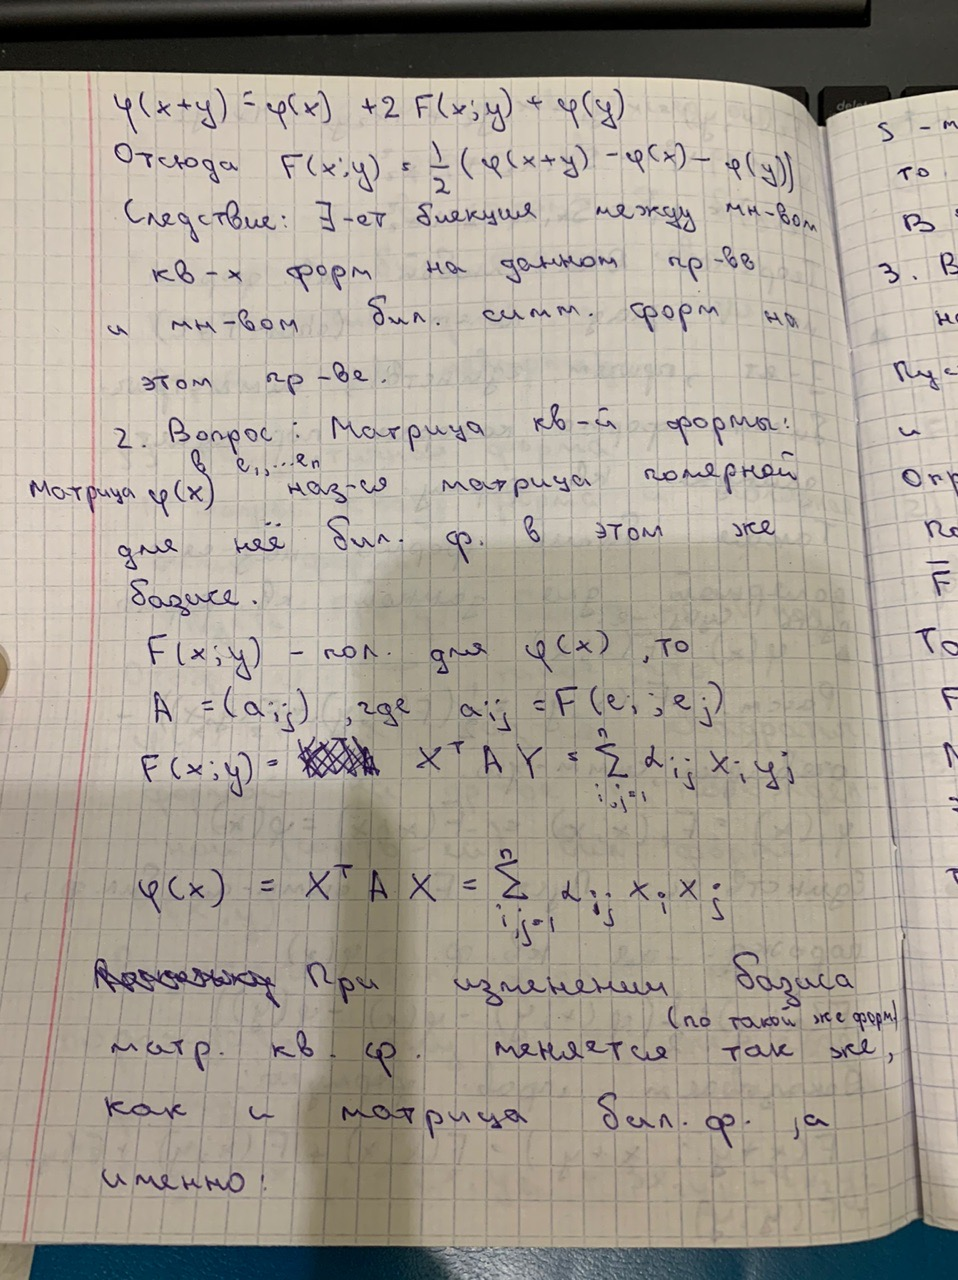 φ(x+y) = φ(x) + 2 F(x;y) + φ(y)
Отсюда F(x;y) = 1/2 (φ(x+y) - φ(x) - φ(y))
Следствие: ∃-ет биекция между мн-вом
кв-х форм на данном пр-ве
и мн-вом бил. симм. форм на
этом пр-ве.
2. Вопрос: Матрица кв-й формы:
в e₁,...eₙ
Матрица φ(x) наз-ся матрица полярной
для неё бил. ф. в этом же
базисе.
F(x;y) - пол. для φ(x), то
A = (aᵢⱼ), где aᵢⱼ = F(eᵢ;eⱼ)
F(x;y) = XᵀAY = ∑ⁿᵢ,ⱼ₌₁ αᵢⱼ xᵢ yⱼ
φ(x) = XᵀAX = ∑ⁿᵢ,ⱼ₌₁ αᵢⱼ xᵢ xⱼ
При изменении базиса
(по такой же форм)
матр. кв. ф. меняется так же,
как и матрица бил. ф., а
именно:
S - м
то
В
3. В
н
Пус
и
Опр
По
F̅
То
F